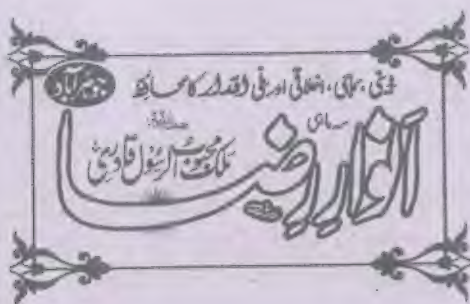 دینی، سماجی، اخلاقی اور ملی اقدار کا محافظ جوہرآباد
سہ ماہی
انوارِ رضا
ملک محبوب الرسول قادری